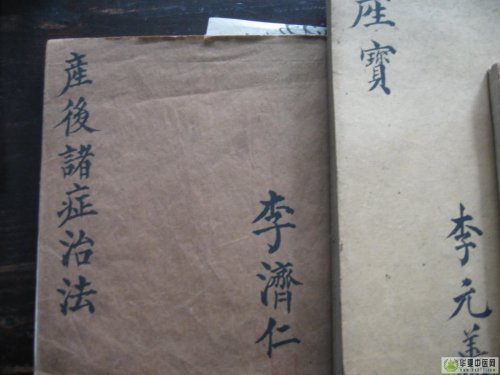 產後諸症治法
李濟仁
產寶
李元
华夏中医网